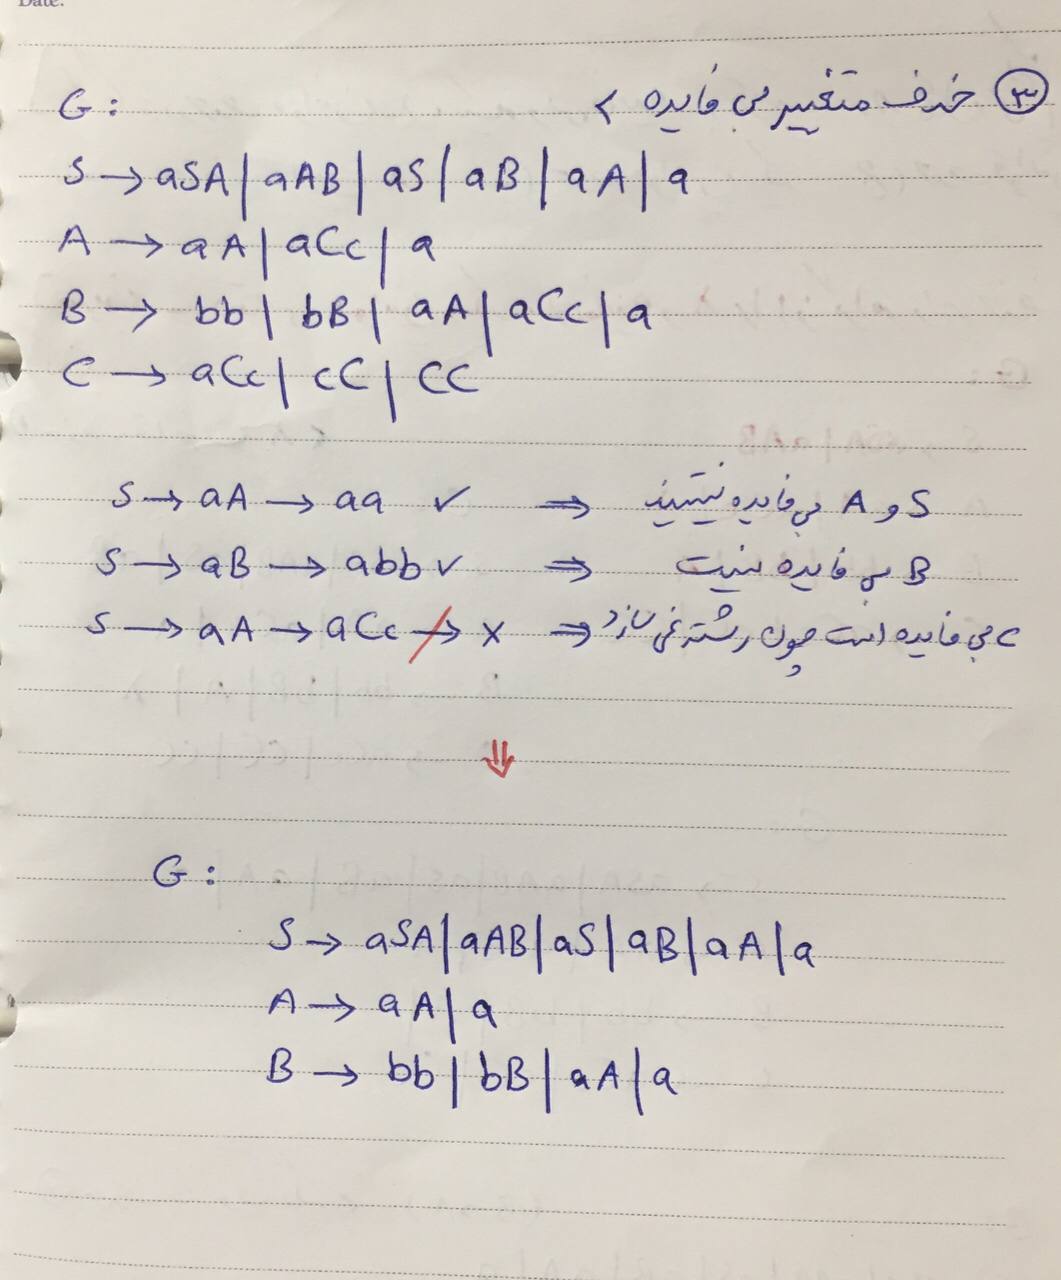 Date:
③ حذف متغییر بی فایده >
G:
S → aSA | aAB | aS | aB | aA | a
A → aA | aCc | a
B → bb | bB | aA | aCc | a
C → aCc | cC | CC
S → aA → aa ✓ ⇒ S و A بی فایده نیستند
S → aB → abb ✓ ⇒ B بی فایده نیست
S → aA → aCc → × ⇒ C بی فایده است چون رشته نمی سازد
⇓
G:
S → aSA | aAB | aS | aB | aA | a
A → aA | a
B → bb | bB | aA | a